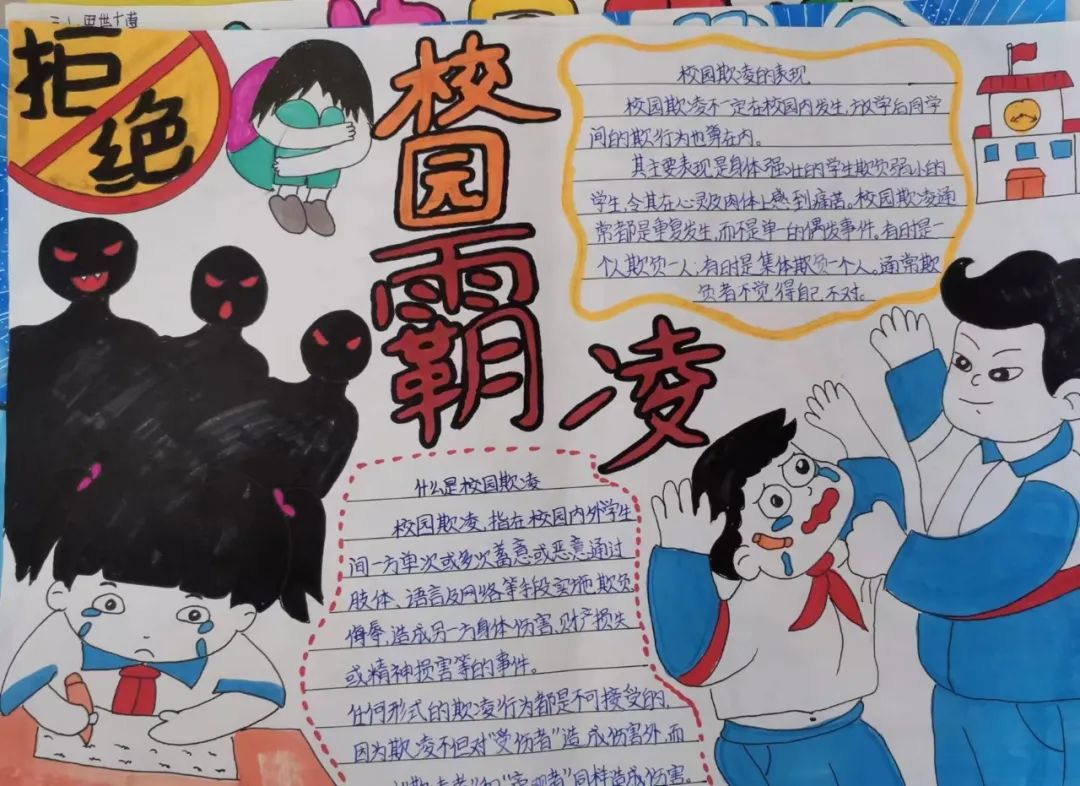 拒绝
校园霸凌
校园欺凌的表现
校园欺凌不一定在校园内发生,放学后同学
间的欺行为也算在内。
其主要表现是身体强壮的学生欺负弱小的
学生,令其在心灵及肉体上感到痛苦。校园欺凌通
常都是重复发生,而不是单一的偶发事件。有时是一
个人欺负一人;有时是集体欺负一个人。通常欺
负者不觉得自己不对。
什么是校园欺凌
校园欺凌、指在校园内外学生
间一方单次或多次蓄意或恶意通过
肢体、语言及网络等手段实施欺负
侮辱,造成另一方身体伤害、财产损失
或精神损害等的事件。
任何形式的欺凌行为都是不可接受的,
因为欺凌不但对“受伤者”造成伤害外,而
者”和“旁观者”同样造成伤害。